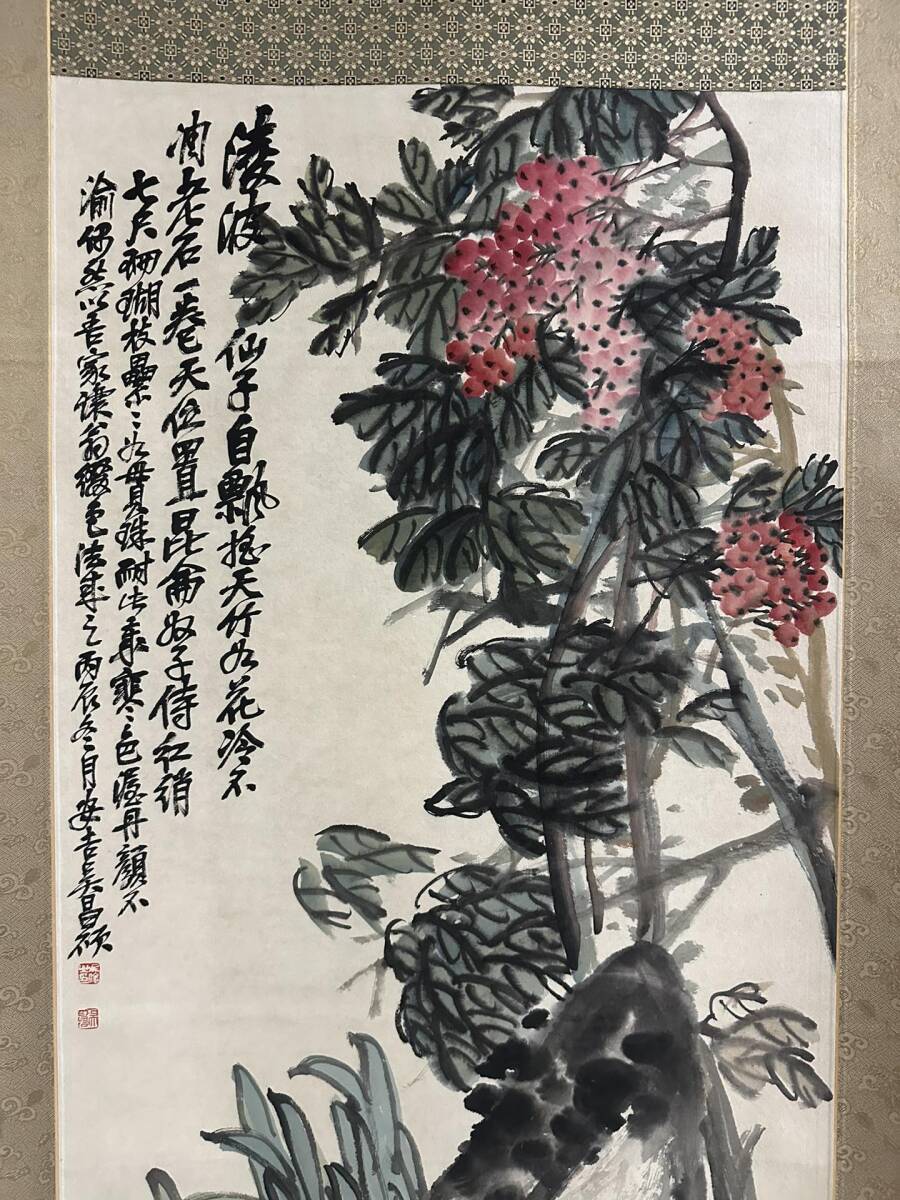 淩波仙子自飄搖天竹如花冷不
凋老石一卷天位置昆侖奴子侍紅綃
七尺珊瑚枝纍纍如貫珠耐此歲寒色渥丹顏不
渝仿然以吾家讓翁綴色法成之丙辰冬月安吉吳昌碩